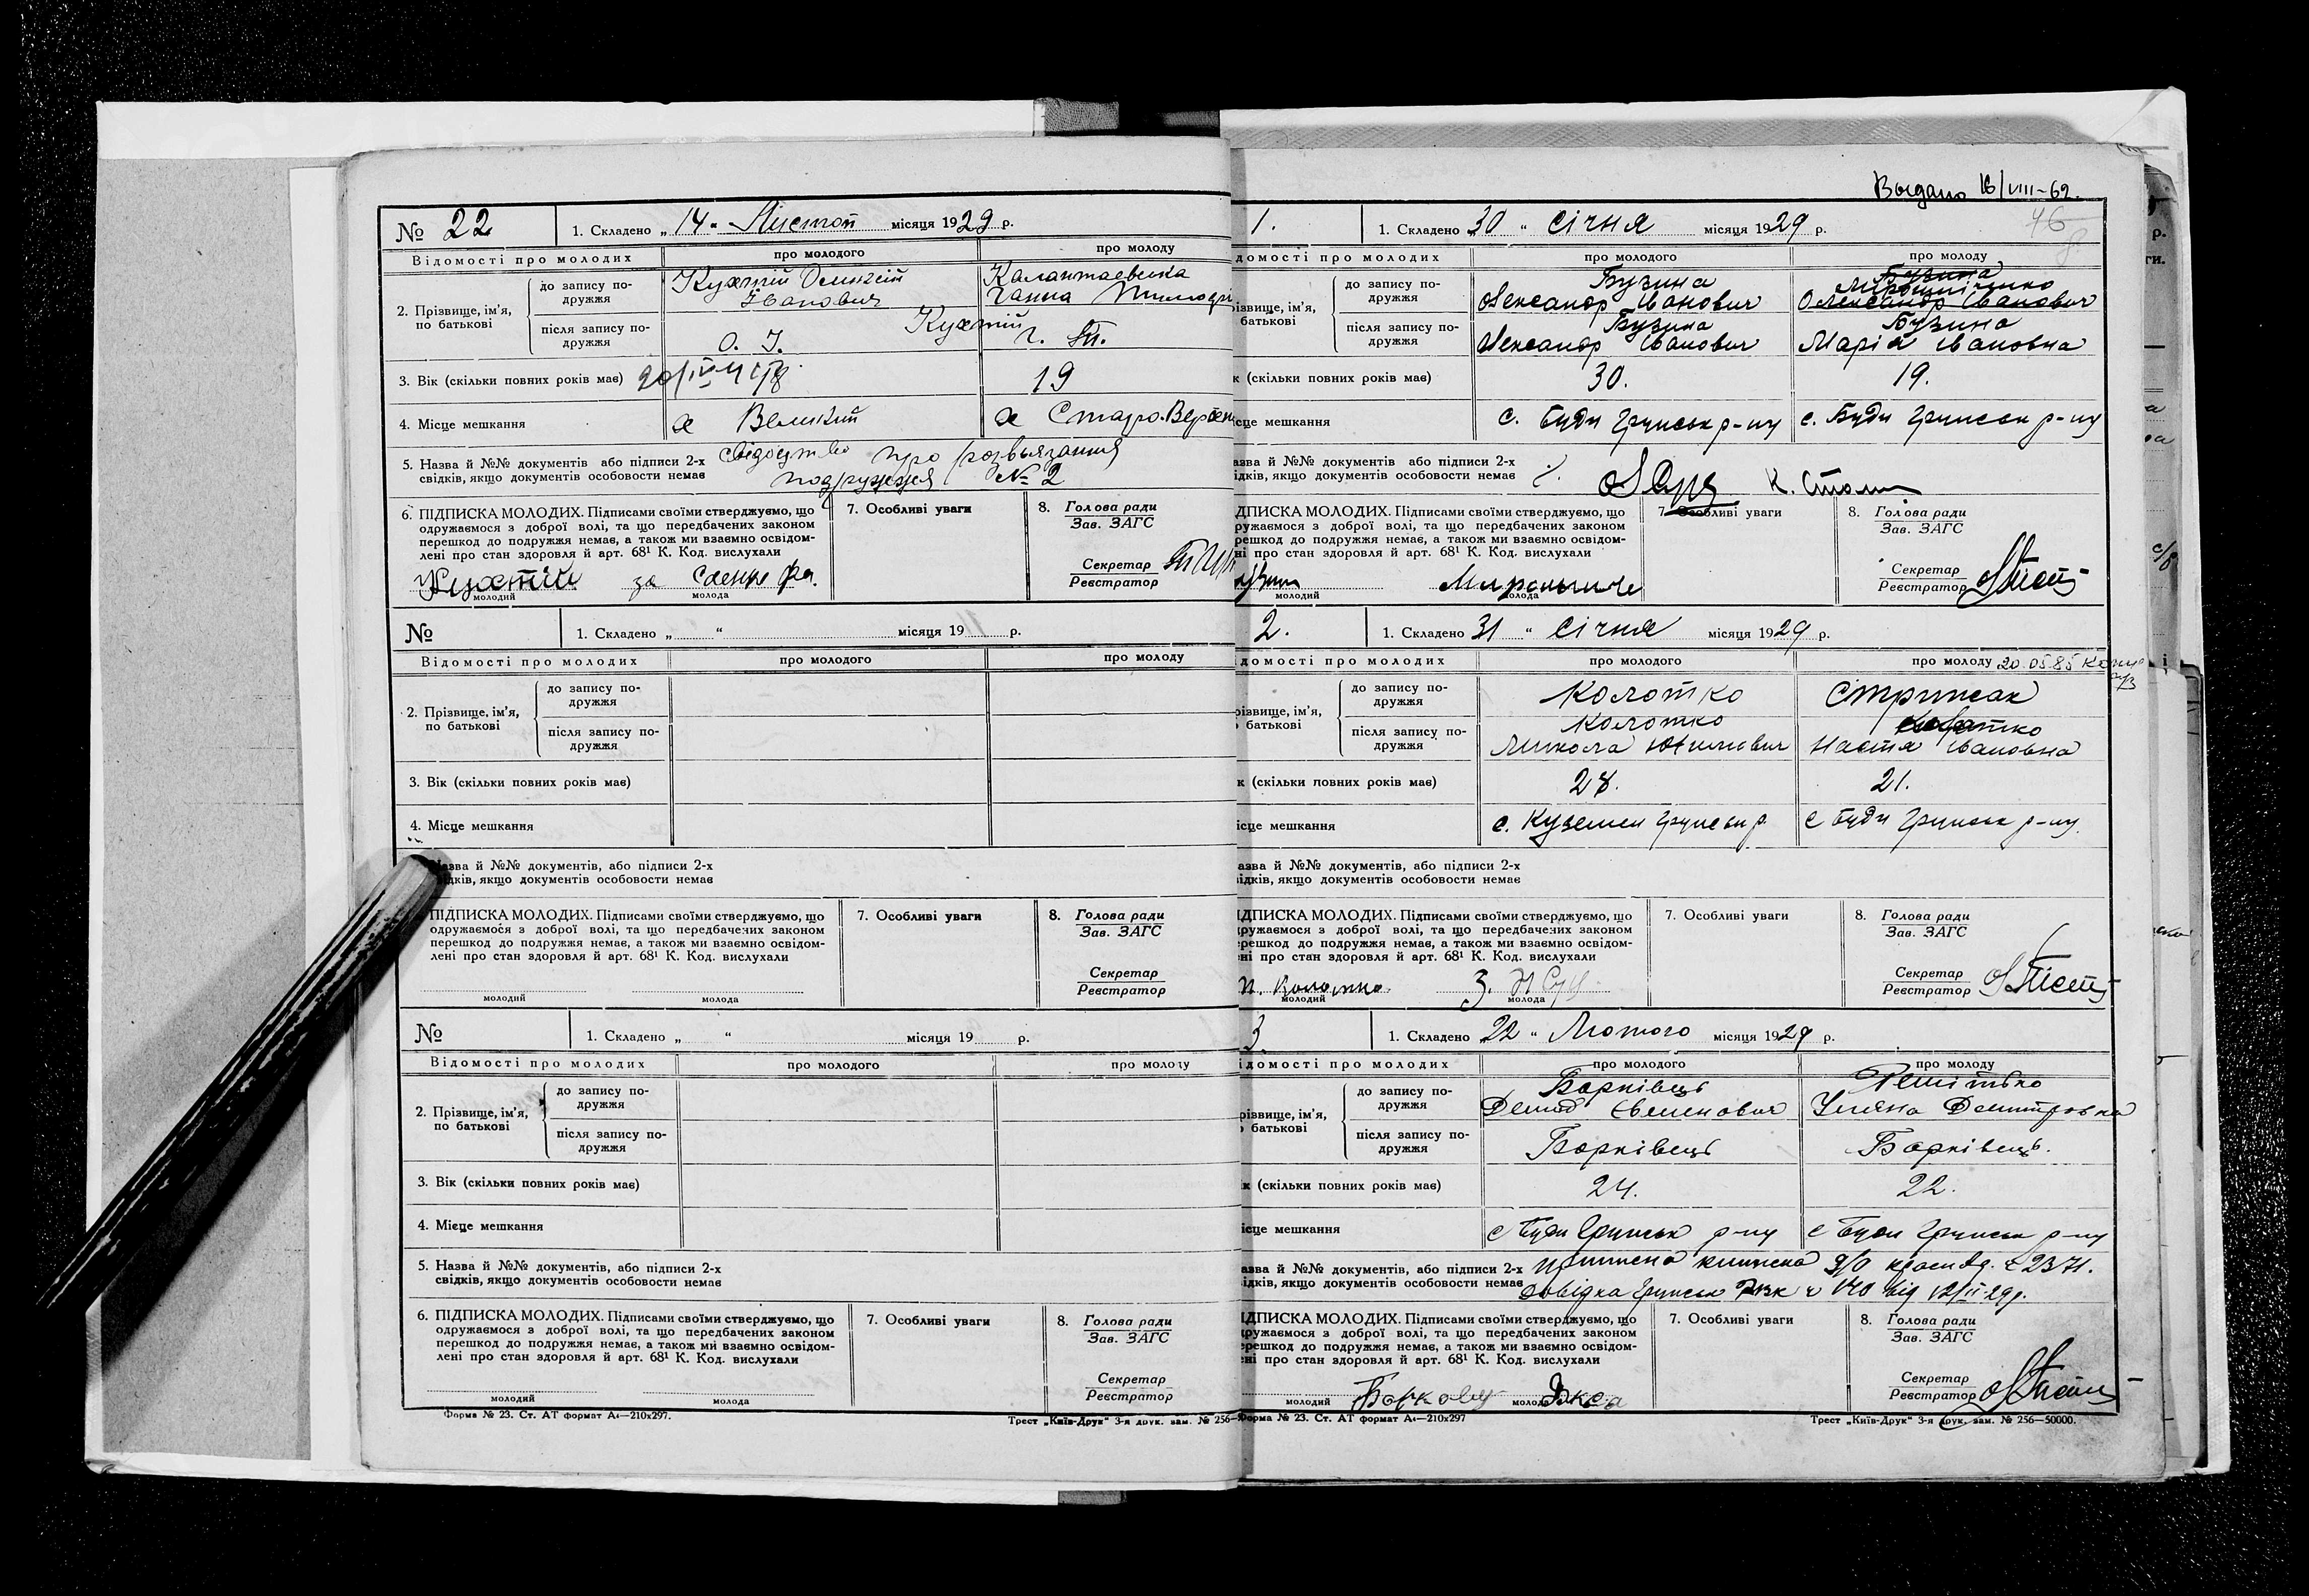 № 22
1. Складено „ 14 " Листоп місяця 1929 р.
Відомості про молодих
про молодого
про молоду
2. Прізвище, ім'я, по батькові
до запису по-
дружжя
Кухтій
Іванович
Калантаевська
Ганна
після запису по-
дружжя
О. І.
Кухтій
Г. Т.
3. Вік (скільки повних років має)
19
4. Місце мешкання
х Великий
х Старо.
5. Назва й №№ документів або підписи 2-х
свідків, якщо документів особовости немає
свідоцтво про розвьязання
подружжя № 2
6. ПІДПИСКА МОЛОДИХ. Підписами своїми стверджуємо, що
одружаємося з доброї волі, та що передбачених законом
перешкод до подружжя немає, а також ми взаємно освідом-
лені про стан здоровля й арт. 68¹ К. Код. вислухали
Кухтій
за
молодий
молода
7. Особливі уваги
8. Голова ради
Зав. ЗАГС
Секретар
Реєстратор
№
1. Складено „ “ місяця 19 р.
Відомості про молодих
про молодого
про молоду
2. Прізвище, ім'я,
по батькові
до запису по-
дружжя
після запису по-
дружжя
3. Вік (скільки повних років має)
4. Місце мешкання
азва й №№ документів, або підписи 2-х
ідків, якщо документів особовости немає
ПІДПИСКА МОЛОДИХ. Підписами своїми стверджуємо, що
одружаємося з доброї волі, та що передбачених законом
перешкод до подружжя немає, а також ми взаємно освідом-
лені про стан здоровля й арт. 68¹ К. Код. вислухали
молодий
молода
7. Особливі уваги
8. Голова ради
Зав. ЗАГС
Секретар
Реєстратор
№
1. Складено „ “ місяця 19 р.
Відомості про молодих
про молодого
про молоду
2. Прізвище, ім'я,
по батькові
до запису по-
дружжя
після запису по-
дружжя
3. Вік (скільки повних років має)
4. Місце мешкання
5. Назва й №№ документів, або підписи 2-х
свідків, якщо документів особовости немає
6. ПІДПИСКА МОЛОДИХ. Підписами своїми стверджуємо, що
одружаємося з доброї волі, та що передбачених законом
перешкод до подружжя немає, а також ми взаємно освідом-
лені про стан здоровля й арт. 68¹ К. Код. вислухали
молодий
молода
7. Особливі уваги
8. Голова ради
Зав. ЗАГС
Секретар
Реєстратор
Форма № 23. Ст. АТ формат А₄—210х297.
Трест „Київ-Друк“ 3-я друк. зам. № 256—
Выдано 16/VIII-62.
46
1.
1. Складено „30 “ Січня місяця 1929 р.
домості про молодих
про молодого
про молоду
різвище, ім'я,
батькові
до запису по-
дружжя
Бузина
Олександр Іванович
Бузина
Мирошніченко
Олександр Іванович
після запису по-
дружжя
Бузина
Олександр Іванович
Бузина
Марія Івановна
к (скільки повних років має)
30.
19.
сце мешкання
с. Буди Грунськ р-ну
с. Буди Грунськ р-ну
азва й №№ документів або підписи 2-х
ідків, якщо документів особовости немає
ДПИСКА МОЛОДИХ. Підписами своїми стверджуємо, що
ружаємося з доброї волі, та що передбачених законом
решкод до подружжя немає, а також ми взаємно освідом-
ні про стан здоровля й арт. 68¹ К. Код. вислухали
молодий
молода
7. Особливі уваги
8. Голова ради
Зав. ЗАГС
Секретар
Реєстратор
2.
1. Складено 31 “ Січня місяця 1929 р.
домості про молодих
про молодого
про молоду
20.05.85
різвище, ім'я,
батькові
до запису по-
дружжя
Колотко
Стрижак
після запису по-
дружжя
Колотко
Микола Юхимович
Колотко
Настя Івановна
к (скільки повних років має)
28.
21.
ісце мешкання
с. Куземен Грунськ р.
с Буди Грунськ р-ну.
азва й №№ документів, або підписи 2-х
ідків, якщо документів особовости немає
ІДПИСКА МОЛОДИХ. Підписами своїми стверджуємо, що
ружаємося з доброї волі, та що передбачених законом
ерешкод до подружжя немає, а також ми взаємно освідом-
ені про стан здоровля й арт. 68¹ К. Код. вислухали
Колотко
молодий
молода
7. Особливі уваги
8. Голова ради
Зав. ЗАГС
Секретар
Реєстратор
3.
1. Складено 22 “ Лютого місяця 1929 р.
ідомості про молодих
про молодого
про молоду
різвище, ім'я,
батькові
до запису по-
дружжя
Борківець
Демид Евменович
Решітько
Уляна Дмитровна
після запису по-
дружжя
Борківець
Борківець.
к (скільки повних років має)
24.
22.
ісце мешкання
с Буди Грунськ р-ну
с Буди Грунськ р-ну
азва й №№ документів, або підписи 2-х
ідків, якщо документів особовости немає
книжка
2371.
довідка Грунськ РВК
від 12/II-29р.
ІДПИСКА МОЛОДИХ. Підписами своїми стверджуємо, що
дружаємося з доброї волі, та що передбачених законом
ерешкод до подружжя немає, а також ми взаємно освідом-
ені про стан здоровля й арт. 68¹ К. Код. вислухали
молодий
молода
7. Особливі уваги
8. Голова ради
Зав. ЗАГС
Секретар
Реєстратор
Форма № 23. Ст. АТ формат А₄—210х297
Трест „Київ-Друк“ 3-я друк. зам. № 256—50000.